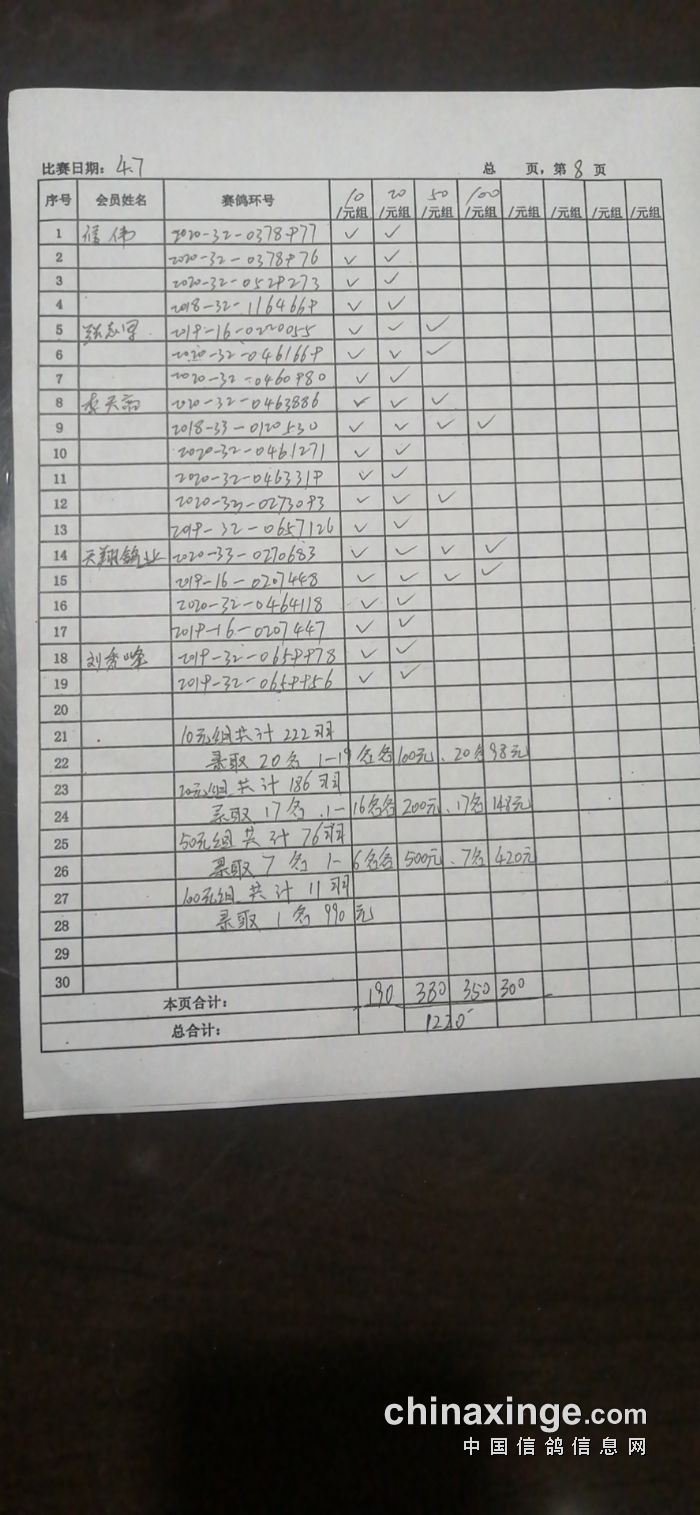 比赛日期: 4.7 总 页, 第 8 页
序号 会员姓名 赛鸽环号 10/元组 20/元组 50/元组 100/元组 /元组 /元组 /元组 /元组
1 伟 2020-32-0378977 ✓ ✓
2 2020-32-0378976 ✓ ✓
3 2020-32-0529273 ✓ ✓
4 2018-32-1164669 ✓ ✓
5 张志军 2019-16-0220055 ✓ ✓ ✓
6 2020-32-0461669 ✓ ✓ ✓
7 2020-32-0460980 ✓ ✓
8 李天 2020-32-0463886 ✓ ✓ ✓
9 2018-33-0120530 ✓ ✓ ✓ ✓
10 2020-32-0461271 ✓ ✓
11 2020-32-0463319 ✓ ✓
12 2020-32-0273093 ✓ ✓ ✓
13 2019-32-0657126 ✓ ✓
14 天翔鸽业 2020-33-0270683 ✓ ✓ ✓ ✓
15 2019-16-0207448 ✓ ✓ ✓ ✓
16 2020-32-0464118 ✓ ✓
17 2019-16-0207447 ✓ ✓
18 刘秀峰 2019-32-0659978 ✓ ✓
19 2019-32-0659956 ✓ ✓
20
21 10元组共计222羽
22 录取20名 1-19名各100元、20名98元
23 20元组共计186羽
24 录取17名 1-16名各200元、17名148元
25 50元组共计76羽
26 录取7名 1-6名各500元、7名420元
27 100元组共计11羽
28 录取1名990元
29
30
本页合计: 190 380 350 300
总合计: 1220
chinaxinge.com
中国信鸽信息网